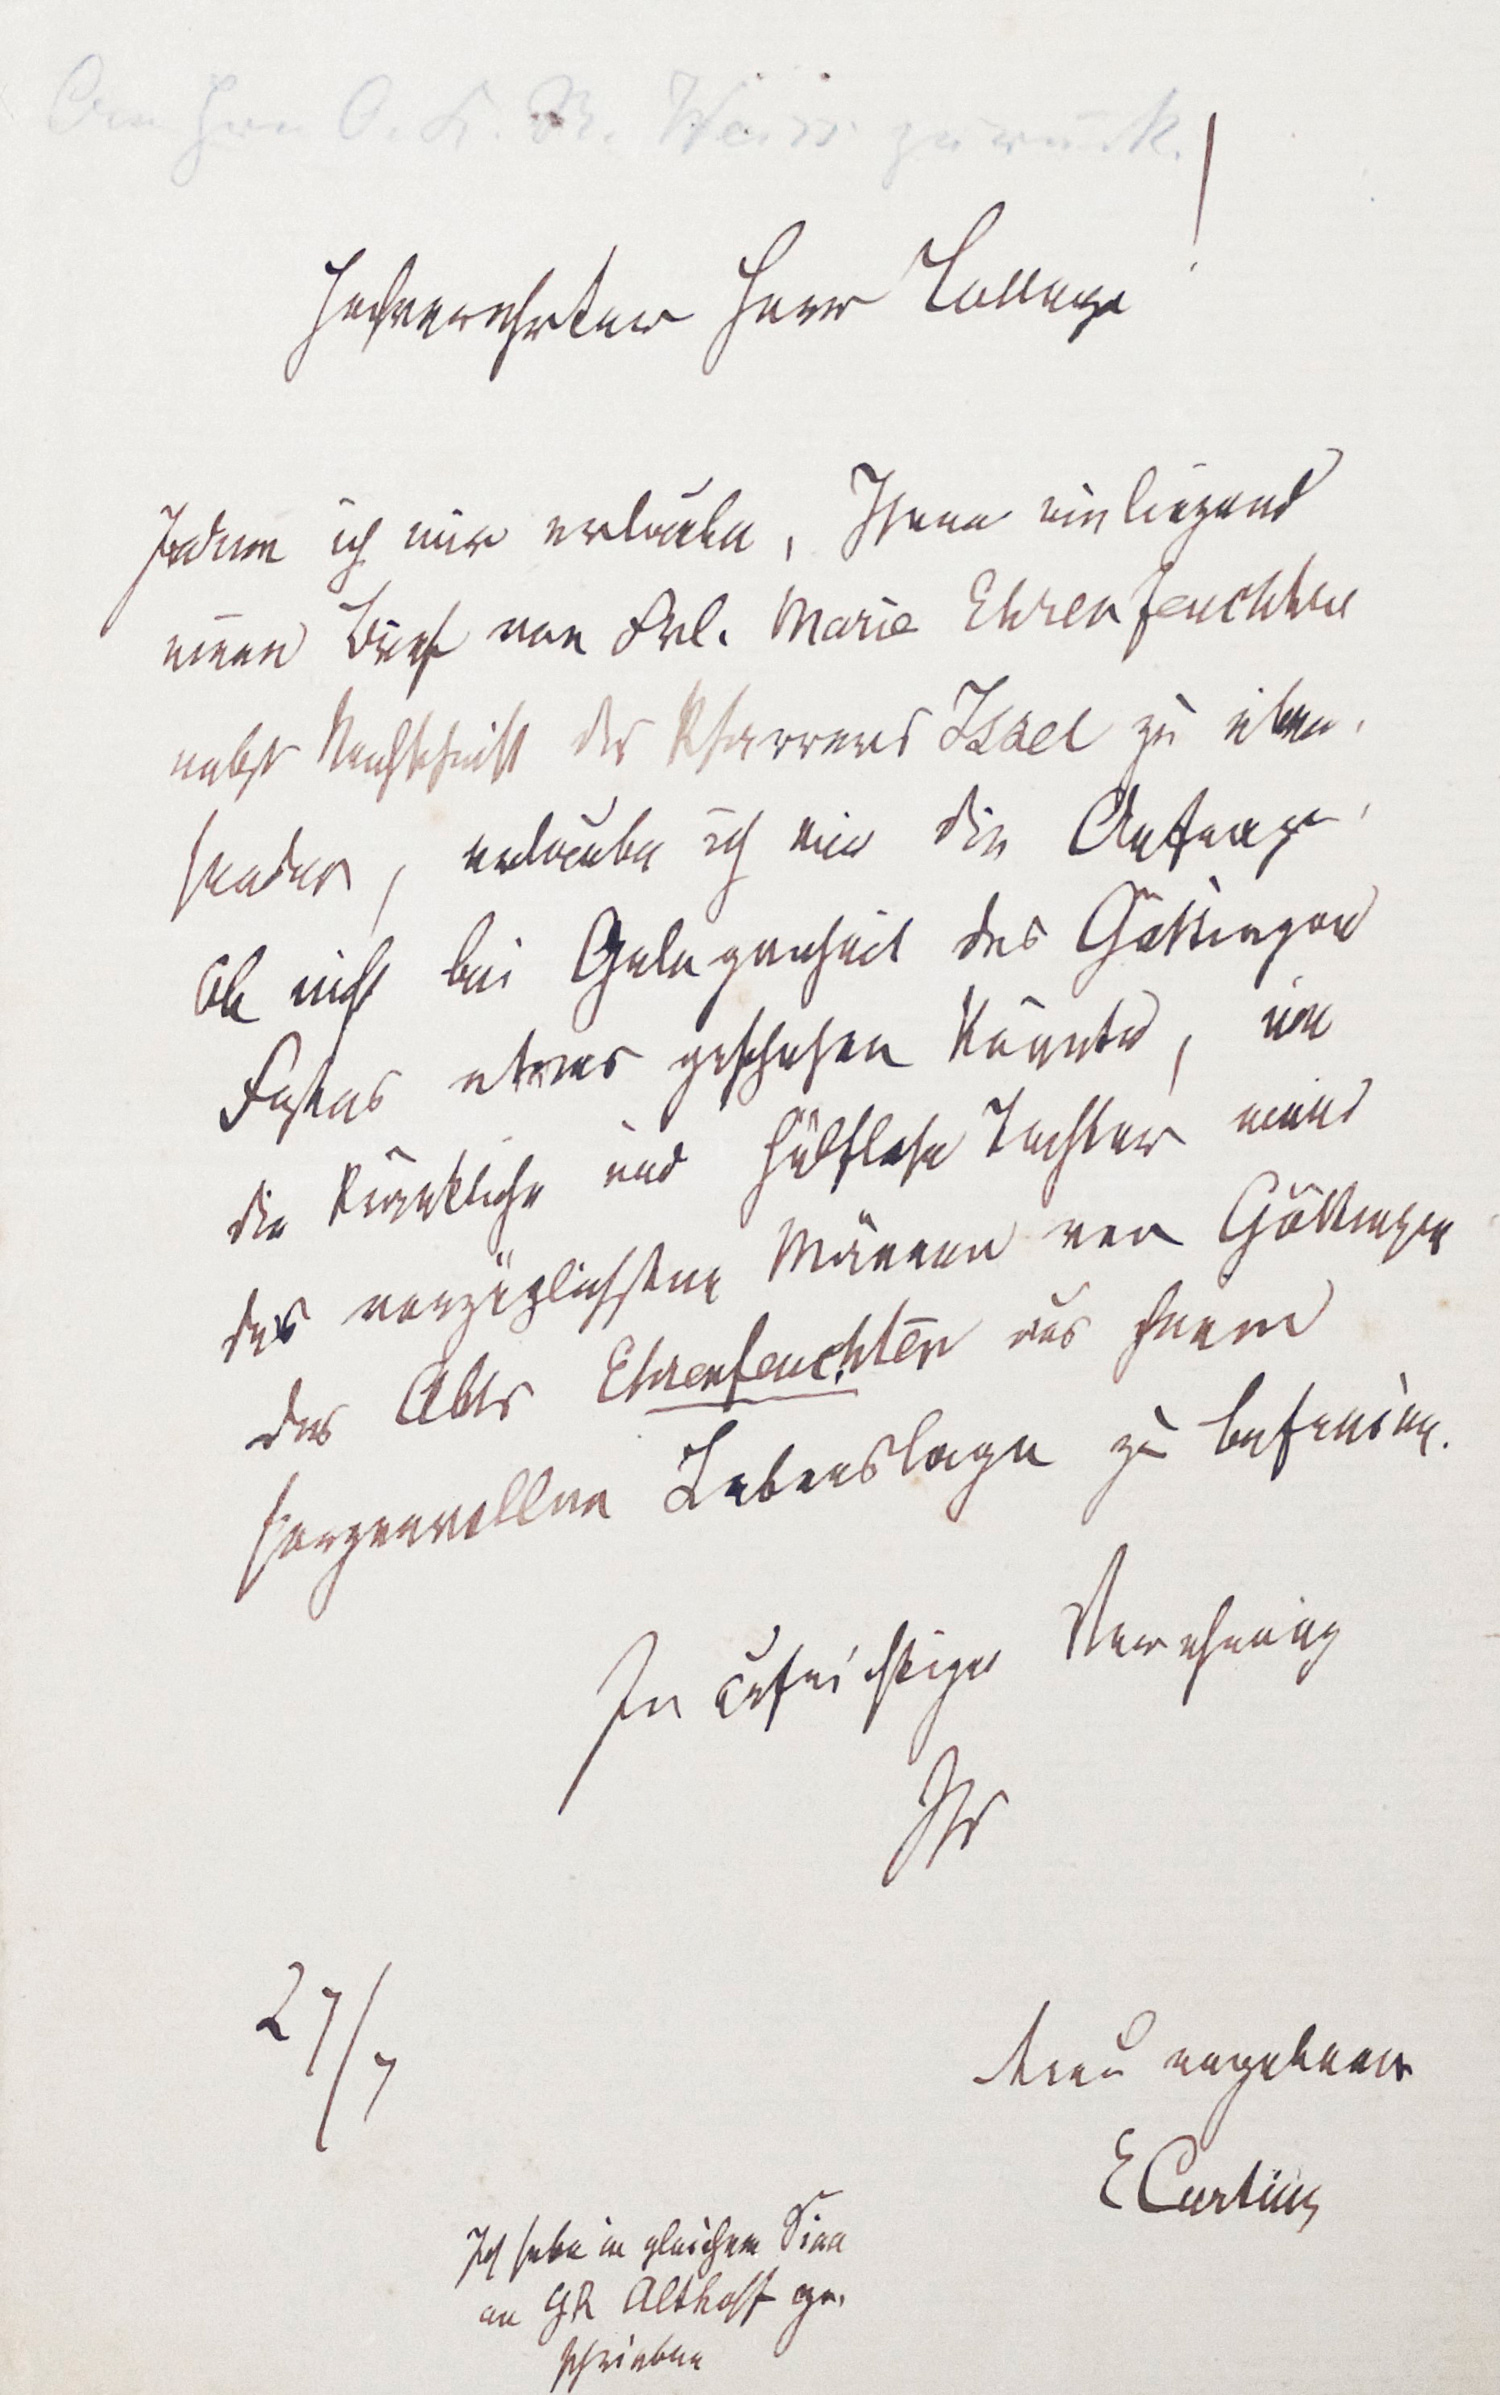 An Hrn O. K. R. Weiss zurück.
Hochverehrter Herr College!
Indem ich mir erlaube, Ihnen einliegend
einen Brief von Frl. Marie Ehrenfeuchter
nebst Nachschrift des Pfarrers Israel zu über-
senden, erlaube ich mir die Anfrage,
ob nicht bei Gelegenheit des Göttinger
Festes etwas geschehen könnte, um
die kränkliche und hülflose Tochter eines
der vorzüglichsten Männer von Göttingen
des Abts Ehrenfeuchter aus ihrem
sorgenvollen Lebenslage zu befreien.
In aufrichtiger Verehrung
Ihr
27/7
treu ergebener
ECurtius
Ich habe in gleichem Sinn
an GR Althoff ge-
schrieben